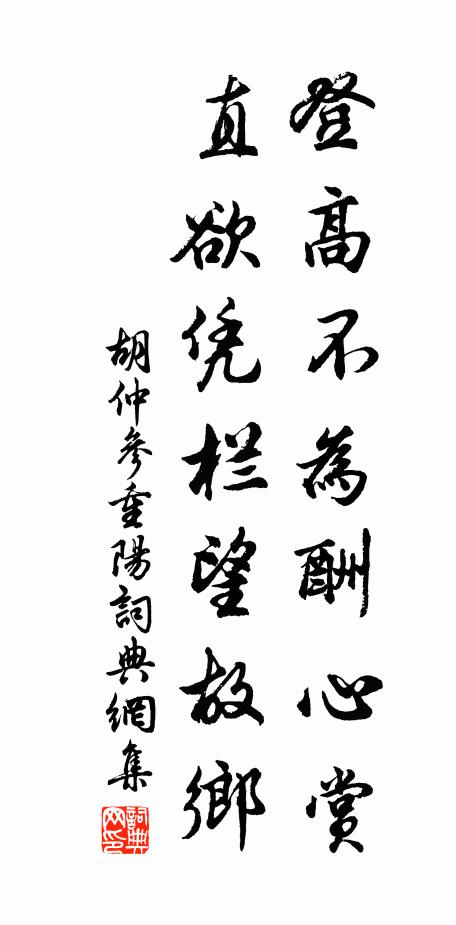 登高不為酬心賞
直欲凭栏望故鄉
胡仲參重陽詞典網集
詞典网印